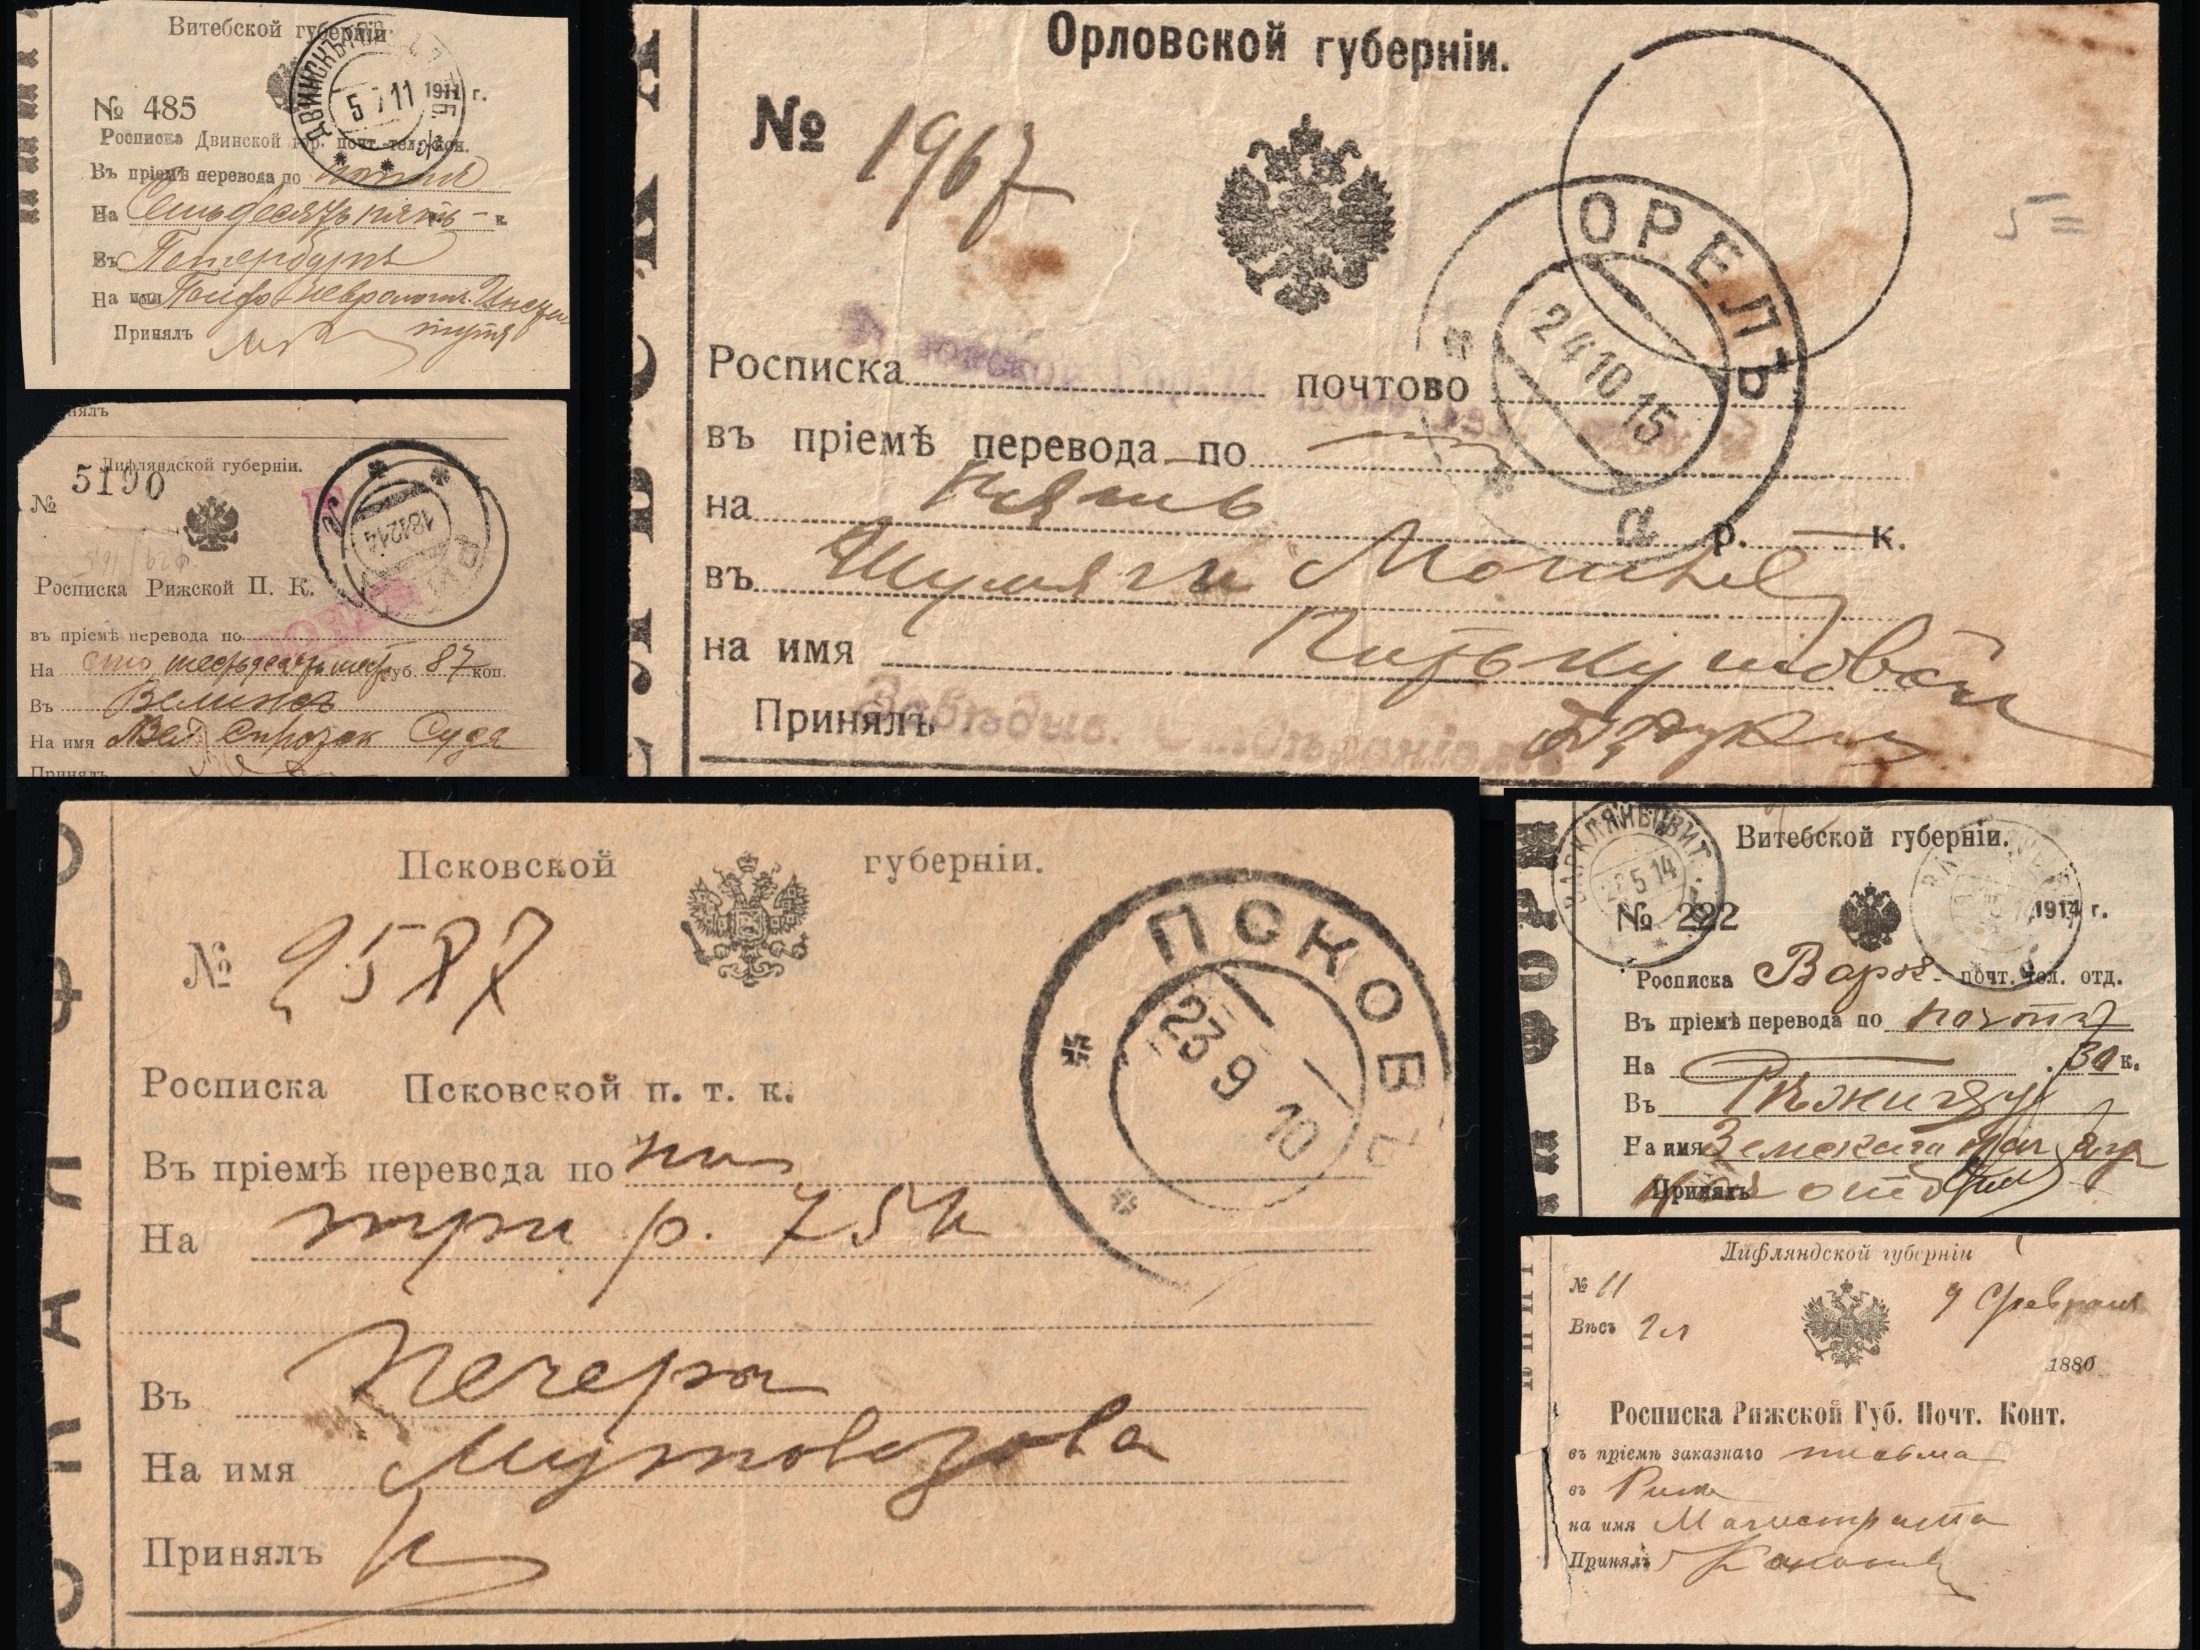 Витебской губерніи
ДВИНСКЪ
5 7 11
1911 г.
№ 485
Росписка Двинской гор. почт. тел. кон.
Въ пріемѣ перевода по почтѣ
На Семьдесятъ пять р. — к.
Въ Петербургъ
На имя Психо-неврологич. Инсти-
тута
Принялъ
Лифляндской губерніи.
№ 5190
18 12 14
Росписка Рижской П. К.
въ пріемѣ перевода по
На сто шестьдесятъ шесть руб. 87 коп.
Въ
На имя Суда
Принялъ
Орловской губерніи.
№ 1967
ОРЕЛЪ
24 10 15
а
5=
Росписка почтово
въ пріемѣ перевода по
на пять р. — к.
въ Шумячи Могилев
на имя
Принялъ
Завѣдыв. Отдѣленіемъ
Псковской губерніи.
№ 2587
ПСКОВЪ
23 9 10
Росписка Псковской п. т. к.
Въ пріемѣ перевода по поч
На три р. 75 к
Въ Печеры
На имя Мутовозова
Принялъ
Витебской губерніи.
ВАРКЛЯНЫ ВИТ.
5 14
№ 222
1914 г.
Росписка Варк- почт. тел. отд.
Въ пріемѣ перевода по почтѣ
На 30 к.
Въ Рѣжицу
На имя Земскаго
Принялъ
Лифляндской губерніи
№ 11
9 Февраля
Вѣсъ 2 л
1880
Росписка Рижской Губ. Почт. Конт.
въ пріемѣ заказнаго письма
въ Риж
на имя Магистрата
Принялъ